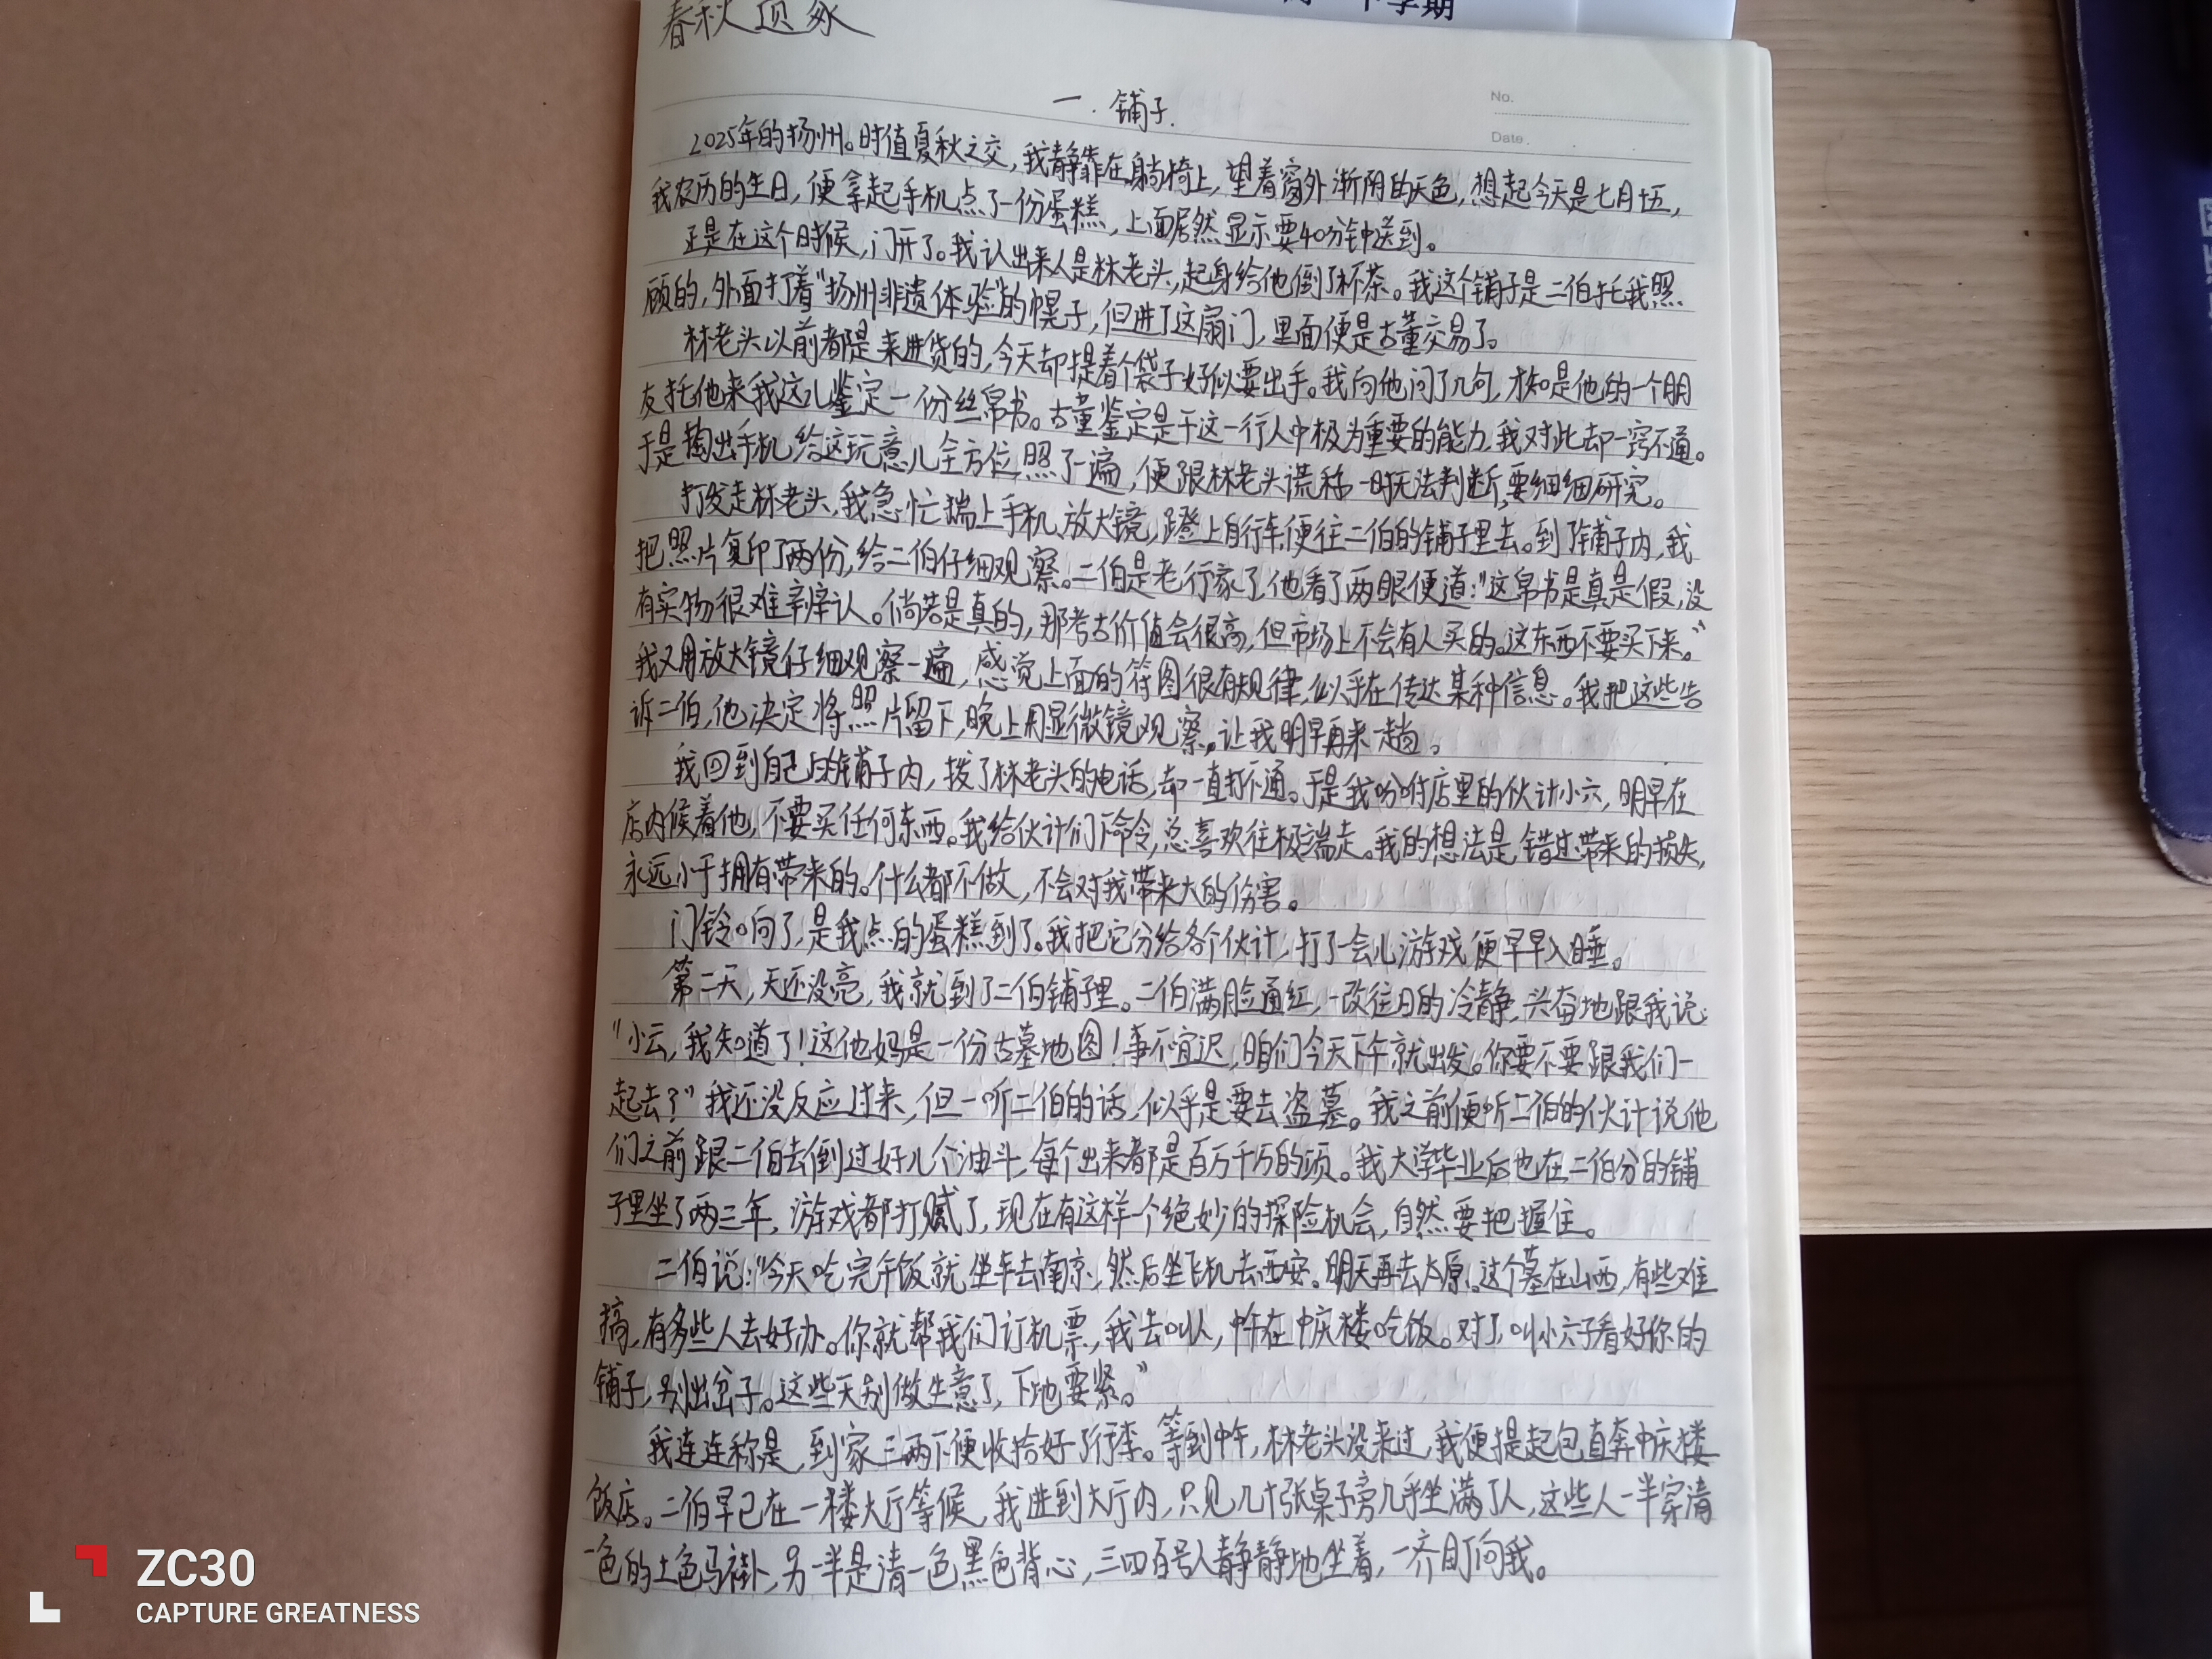 下学期
春秋
No.
Date.
一.铺子.
2025年的扬州。时值夏秋之交,我静靠在躺椅上,望着窗外渐阴的天色,想起今天是七月十五,
我农历的生日,便拿起手机点了一份蛋糕,上面居然显示要40分钟送到。
正是在这个时候,门开了。我认出来人是林老头,起身给他倒了杯茶。我这个铺子是二伯托我照
顾的,外面打着“扬州非遗体验”的幌子,但进了这扇门,里面便是古董交易了。
林老头以前都是来进货的,今天却提着个袋子好似要出手。我向他问了几句,才知是他的一个朋
友托他来我这儿鉴定一份丝帛书。古董鉴定是干这一行人中极为重要的能力,我对此却一窍不通。
于是掏出手机给这玩意儿全方位照了一遍,便跟林老头谎称一时无法判断,要细细研究。
打发走林老头,我急忙揣上手机、放大镜,蹬上自行车便往二伯的铺子里去。到了铺子内,我
把照片复印了两份,给二伯仔细观察。二伯是老行家了,他看了两眼便道:“这帛书是真是假,没
有实物很难辨认。倘若是真的,那考古价值会很高,但市场上不会有人买的。这东西不要买下来。”
我又用放大镜仔细观察一遍,感觉上面的符图很有规律,似乎在传达某种信息。我把这些告
诉二伯,他决定将照片留下,晚上用显微镜观察,让我明早再来一趟。
我回到自己的铺子内,拨了林老头的电话,却一直打不通。于是我吩咐店里的伙计小六,明早在
店内候着他,不要买任何东西。我给伙计们下命令,总喜欢往极端走。我的想法是,错过带来的损失,
永远小于拥有带来的。什么都不做,不会对我带来大的伤害。
门铃响了,是我点的蛋糕到了。我把它分给各个伙计,打了一会儿游戏便早早入睡。
第二天,天还没亮,我就到了二伯铺子里。二伯满脸通红,一改往日的冷静,兴奋地跟我说:
“小云,我知道了!这他妈是一份古墓地图!事不宜迟,咱们今天下午就出发。你要不要跟我们一
起去?”我还没反应过来,但一听二伯的话,似乎是要去盗墓。我之前便听二伯的伙计说他
们之前跟二伯去倒过好几个油斗,每个出来都是百万千万的项。我大学毕业后也在二伯分的铺
子里坐了两三年,游戏都打腻了,现在有这样一个绝妙的探险机会,自然要把握住。
二伯说:“今天吃完午饭就坐车去南京,然后坐飞机去西安。明天再去太原。这个墓在山西,有些难
搞,有多些人去好办。你就帮我们订机票,我去叫人,中午在中庆楼吃饭。对了,叫小六子看好你的
铺子,别出岔子。这些天别做生意了,下地要紧。”
我连连称是,到家三两下便收拾好了行李。等到中午,林老头没来过,我便提起包直奔中庆楼
饭店。二伯早已在一楼大厅等候,我进到大厅内,只见几十张桌子旁几乎坐满了人,这些人一半穿清
一色的土色马褂,另一半是清一色黑色背心,三四百号人静静地坐着,一齐盯向我。
ZC30
CAPTURE GREATNESS